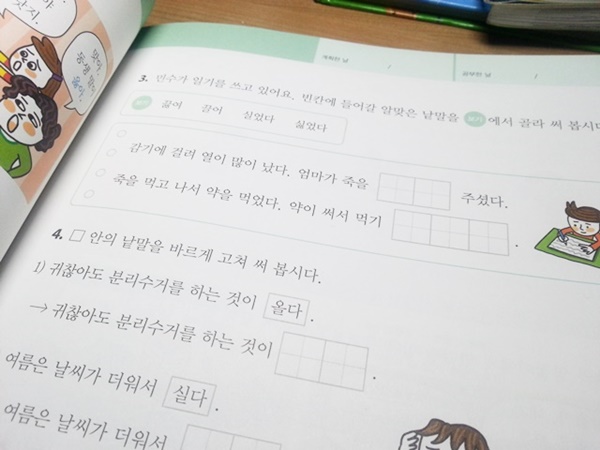 맞아.
옳아.
계획한 날 /
공부한 날 /
3. 민수가 일기를 쓰고 있어요. 빈칸에 들어갈 알맞은 낱말을 보기 에서 골라 써 봅시다
보기 끓어 끌어 실었다 싫었다
감기에 걸려 열이 많이 났다. 엄마가 죽을 주셨다.
죽을 먹고 나서 약을 먹었다. 약이 써서 먹기 .
4. □ 안의 낱말을 바르게 고쳐 써 봅시다.
1) 귀찮아도 분리수거를 하는 것이 올다 .
→ 귀찮아도 분리수거를 하는 것이 .
여름은 날씨가 더워서 실다 .
여름은 날씨가 더워서 .